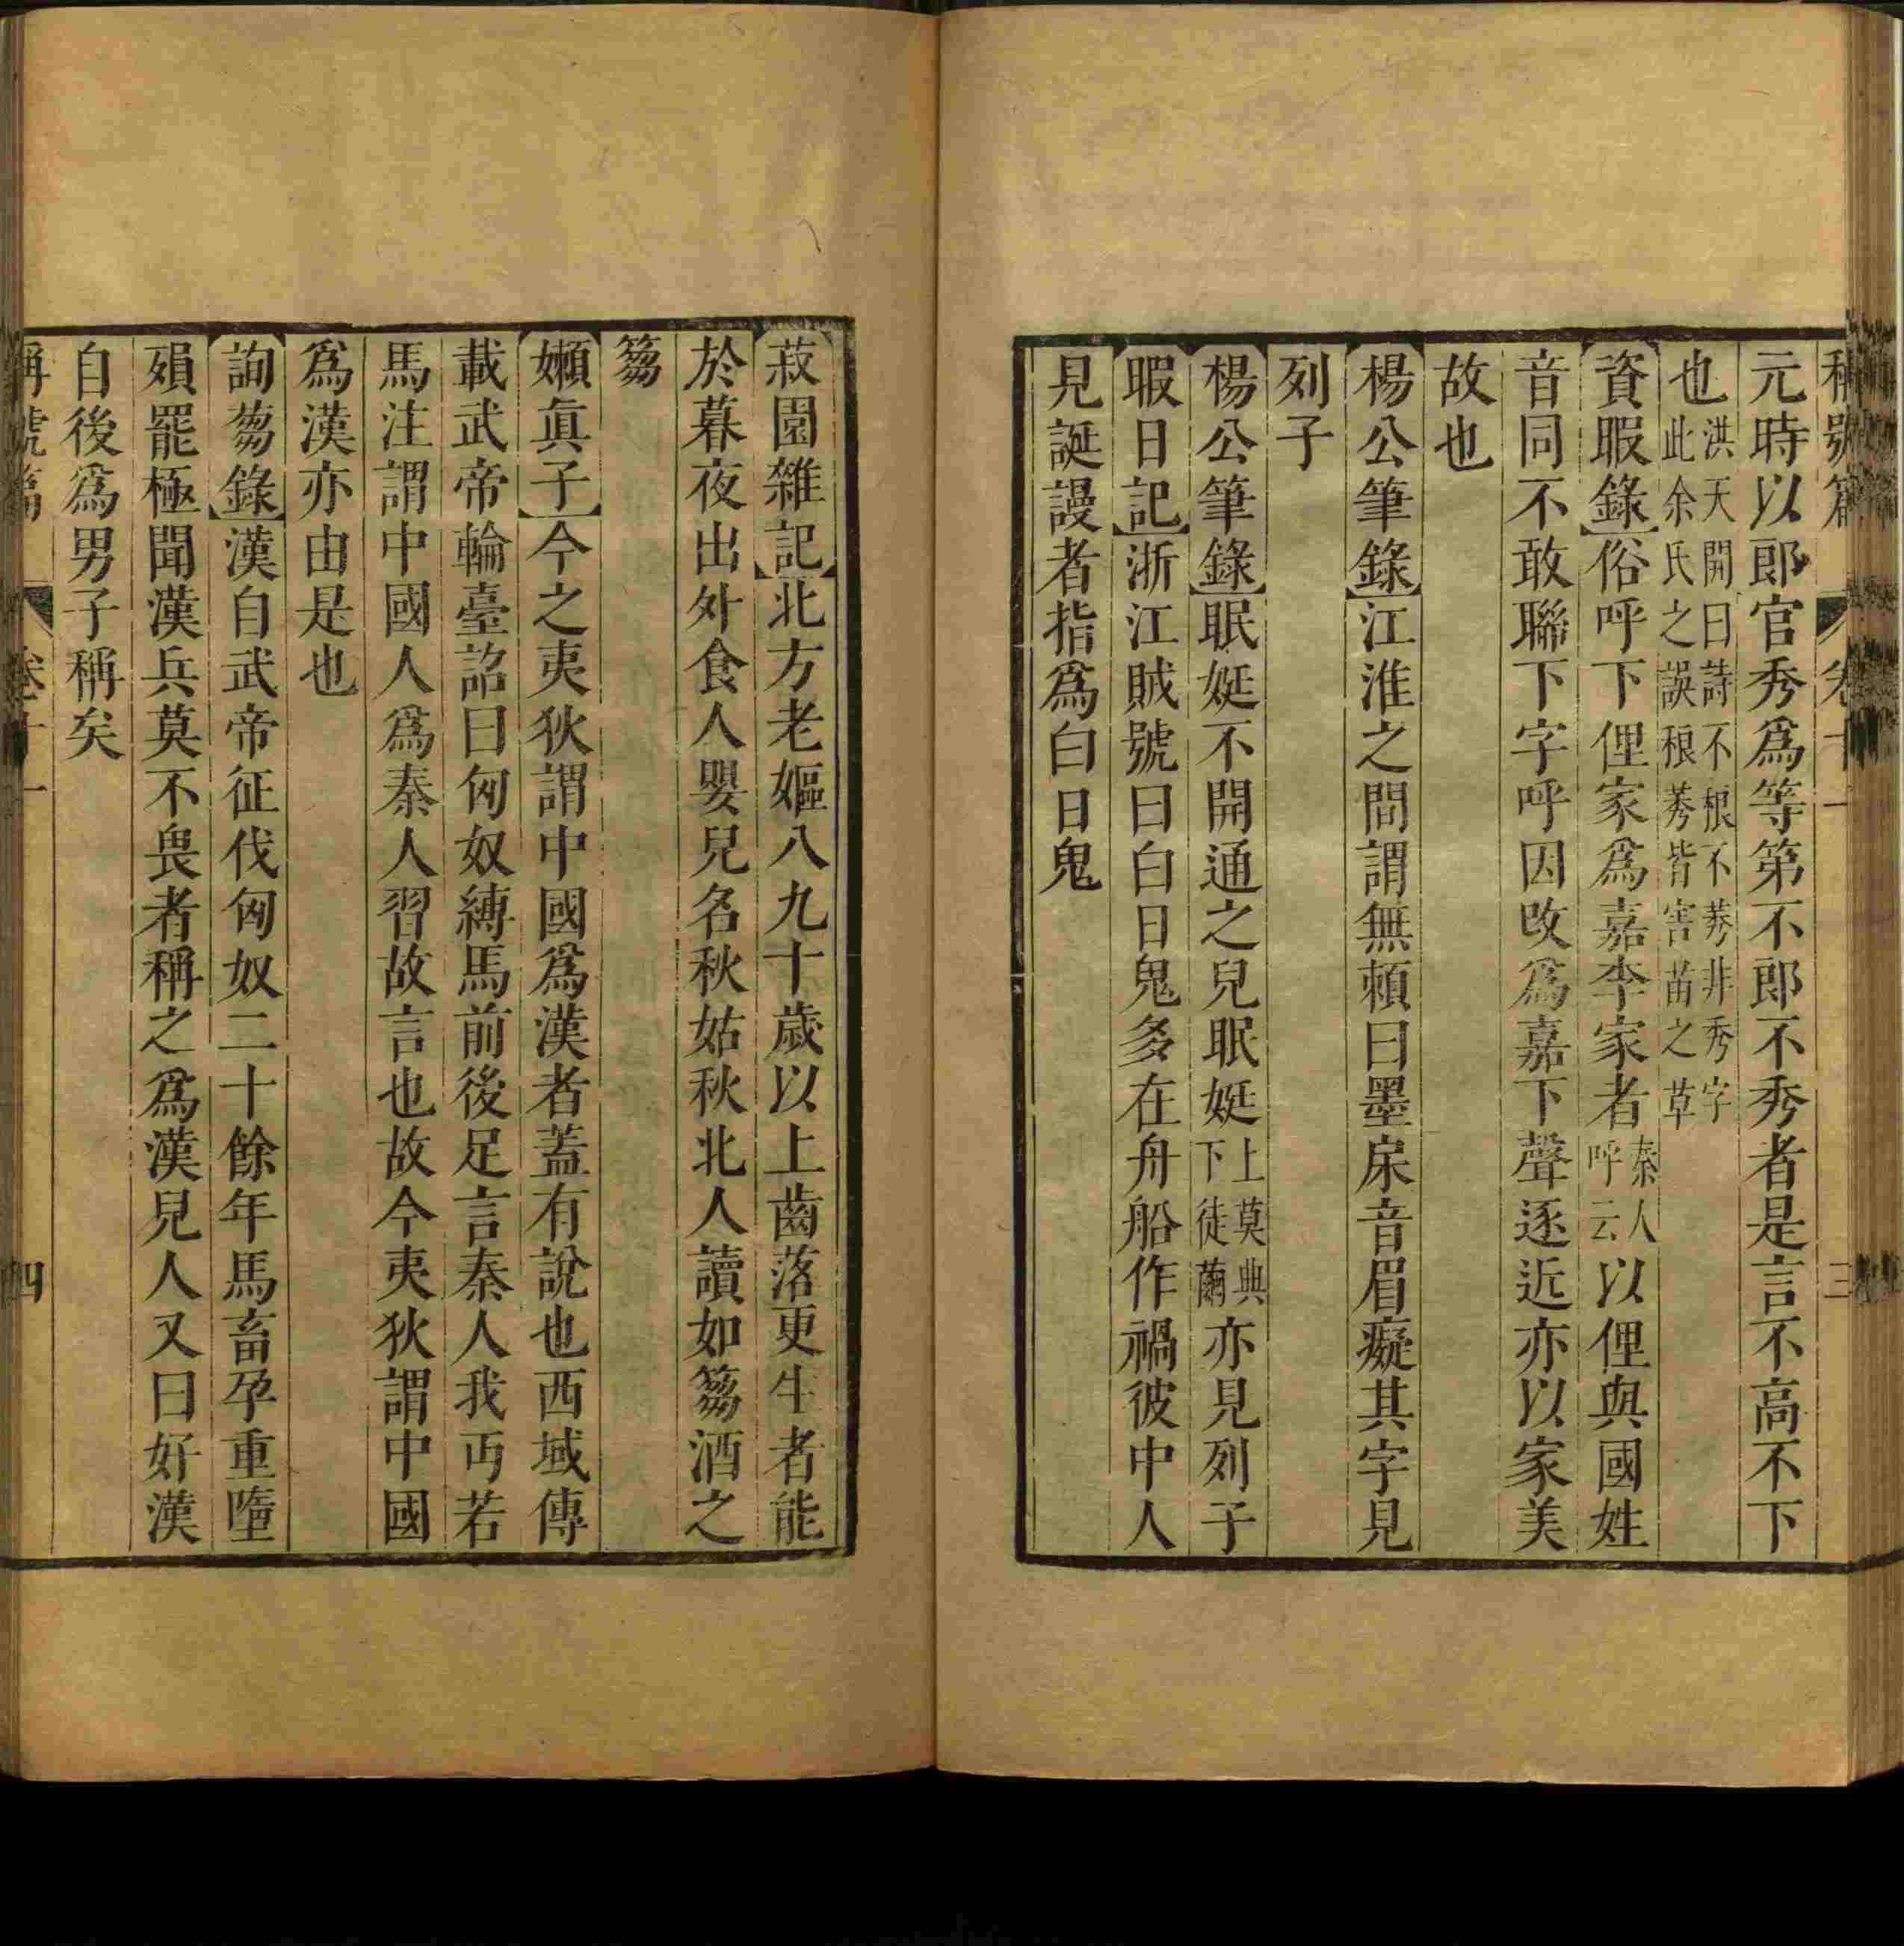 稱號篇 卷十一 三
元時以郎官秀爲等第不郎不秀者是言不高不下
也洪天開曰詩不稂不莠非秀字此余氏之誤稂莠皆害苗之草
【資暇錄】俗呼下俚家爲嘉李家者秦人呼云以俚與國姓
音同不敢聯下字呼因改爲嘉下聲逐近亦以家美
故也
【楊公筆錄】江淮之間謂無賴曰墨㞘音眉癡其字見
列子
【楊公筆錄】眠娗不開通之兒眠娗上莫典下徒繭亦見列子
【暇日記】浙江賊號曰白日鬼多在舟船作禍彼中人
見誕謾者指爲白日鬼
【菽園雜記】北方老嫗八九十歲以上齒落更生者能
於暮夜出外食人嬰兒名秋姑秋北人讀如篘酒之
篘
【嬾眞子】今之夷狄謂中國爲漢者蓋有說也西域傳
載武帝輪臺詔曰匈奴縛馬前後足言秦人我丏若
馬注謂中國人爲秦人習故言也故今夷狄謂中國
爲漢亦由是也
【詢蒭錄】漢自武帝征伐匈奴二十餘年馬畜孕重墮
殰罷極聞漢兵莫不畏者稱之爲漢兒人又曰好漢
自後爲男子稱矣
稱號篇 卷十一 四